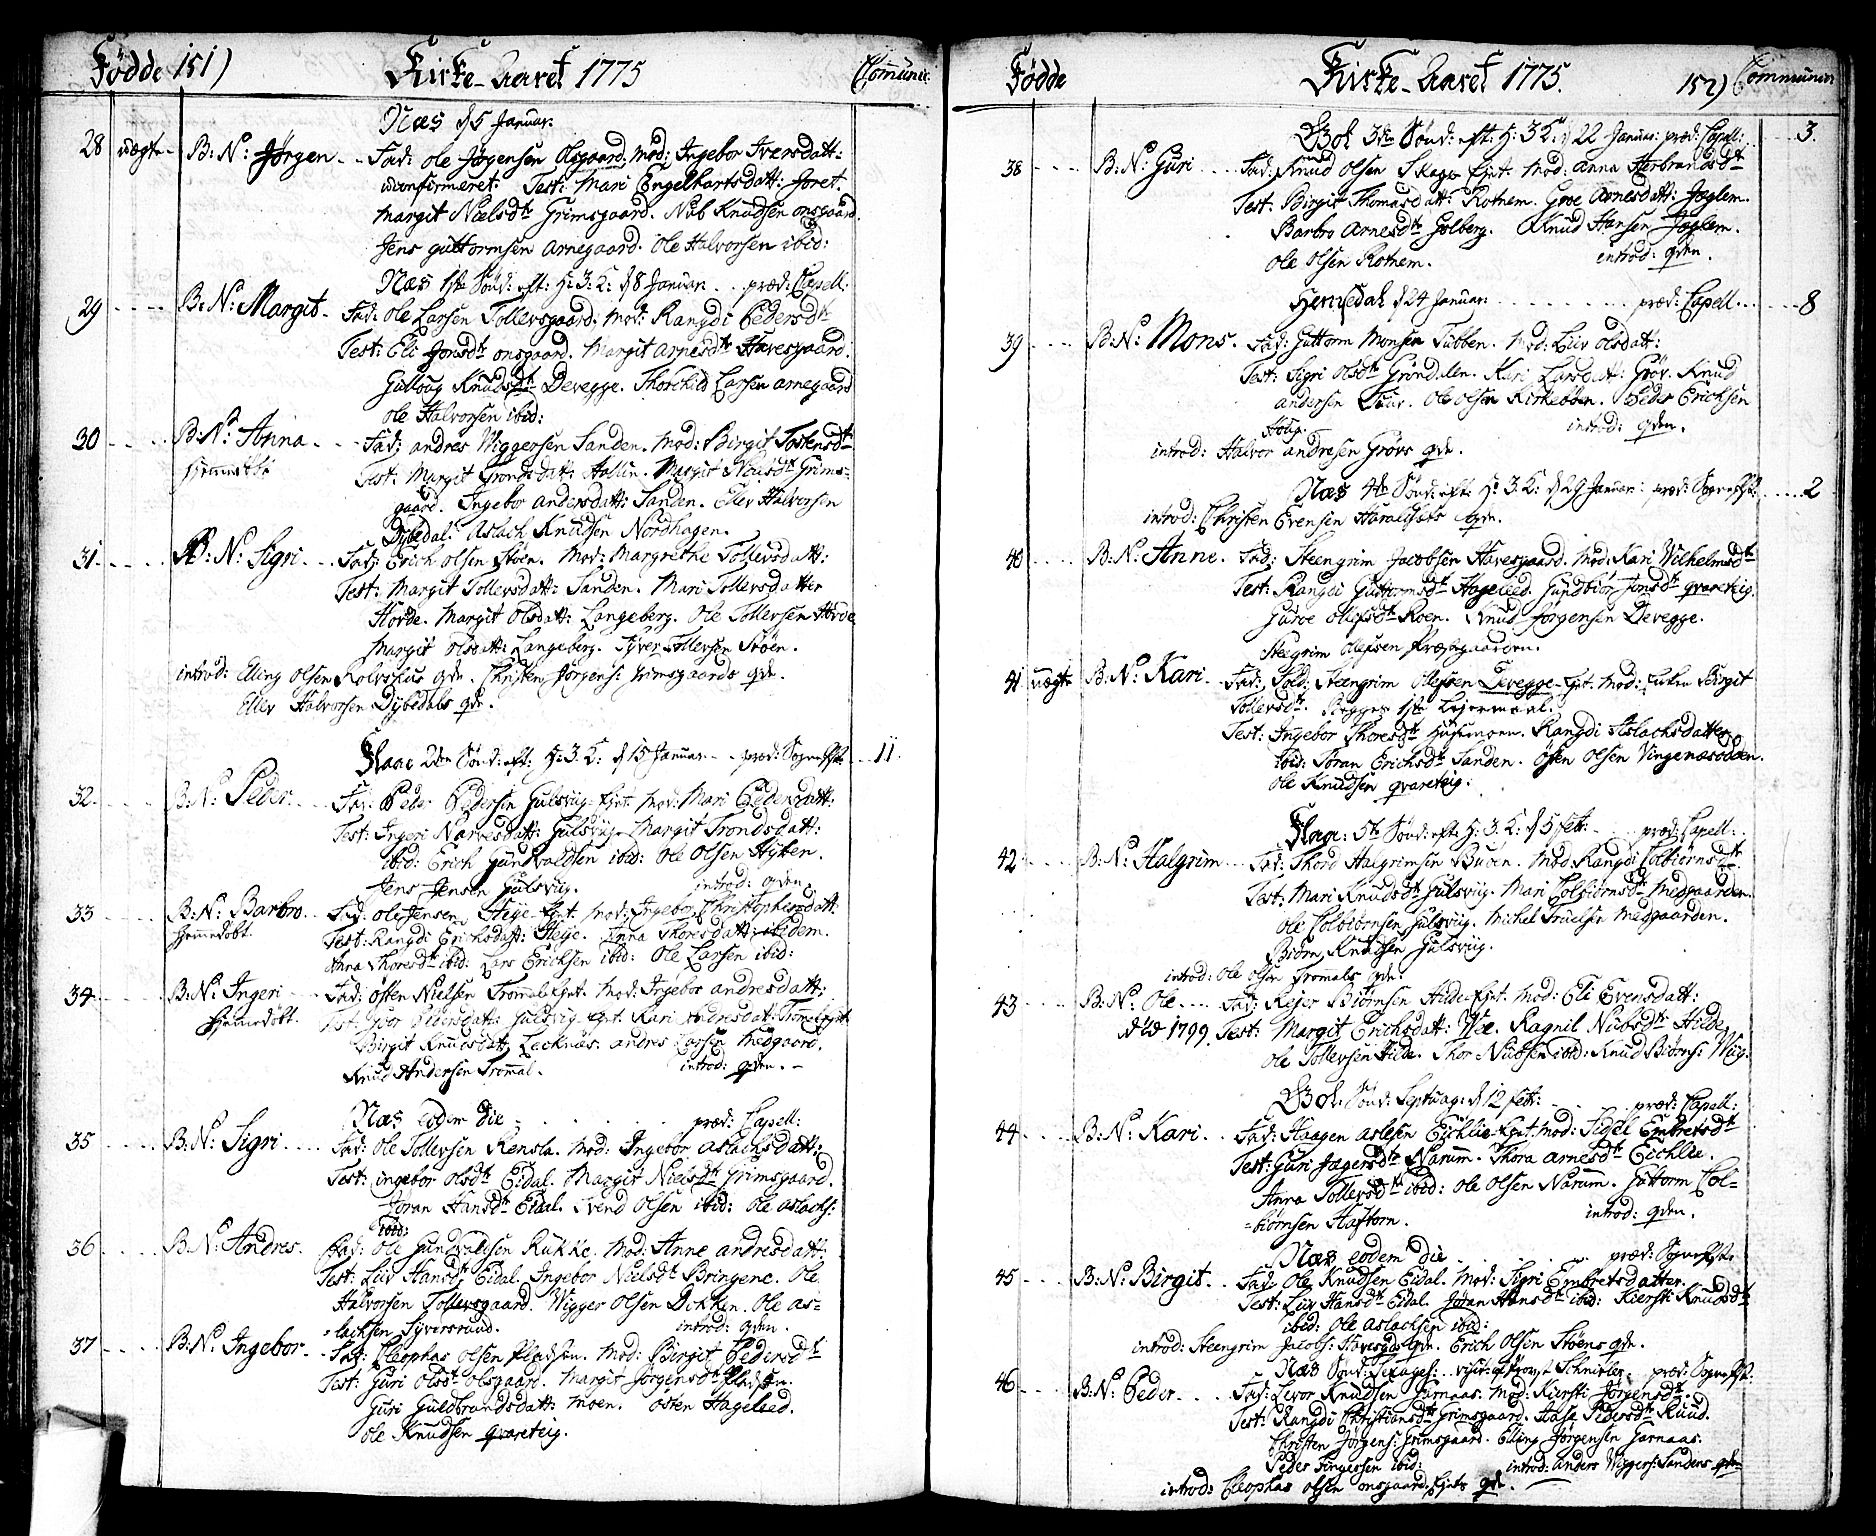 Fødde 151) Kirke-Aaret 1775 Commun:
Næs d 5 Januar:
28 uægte B: N: Jørgen -- Fad: Ole Jørgensen Olsgaard. mod: Ingebor Iversdatt:
uconfirmeret: Test: Mari Engelhartsdatt:
Margit Nielsdtr Grimsgaard. Nub Knudsen onsgaard.
Jens Guttormsen arnegaard. Ole Halvorsen ibid:
Næs 1ste Sønd: eft: H: 3: K: d 8 Januar. .. præd: Capell:
29 B: N: Margit. Fad: Ole Larsen Tollevsgaard; mod: Rangdi Pedersdtr
Test: Eli Jonsdtr onsgaard. Margit arnesdtr Havesgaard.
Gullaug Knudsdtr Devegge. Thorchild Larsen arnegaard
Ole Halvorsen ibid:
30 B: N: Anna - - Fad: andres Wiggersen Sanden. Mod: Birgit Tostensdtr
hjemmedøbt Test: Margit Trondsdatt: Hallin. Margit Nielsdtr Grims-
gaard. Ingebor andersdatt: Sanden. Ellev Halvorsen
Dybedal. Aslach Knudsen Nordhagen.
31 B: N: Sigri Fad: Erich Olsen Støen. Mod: Margrethe Tollevsdatt:
Test: Margit Tollevsdatt: Sanden. Mari Tollevsdatter
Hovde. Margit Olsdatt: Langeberg. Ole Tollevsen Hovde
Margit Olsdatt: Langeberg. Syver Tollevsen Støen.
introd: Elling Olsen Rolvshus qvn. Christen Jørgens: Grimsgaards qvn.
Ellev Halvorsen Dybedals qvn.
Flaae 2den Sønd: eft: H: 3: K: d 15 Januar -- præd: Sognepst: 11.
32 B: N: Peder. Fad: Peder Pedersen Gulsvig-Ejet. Mod: Mari Pedersdatt:
Test: Ingeri Narvesdatt: Gulsvig. Margit Trondsdatt:
ibid: Erich Gundvaldsen ibid: Ole Olsen Hyken.
Jens Jensen Gulsvig. introd: qvden.
33 B: N: Barbro. Fad: Ole Jensen Heje-Ejet. Mod: Ingebor Christophersdatt:
hjemmedøbt. Test: Rangdi Erichsdatt: Heije. Anna Thoresdatt: ibidem.
Anna Thoresdtr ibid: Lars Erichsen ibid: Ole Larsen ibid:
34 B: N: Ingeri Fad: Østen Nielsen Trommald-Ejet. Mod: Ingebor andresdatt:
hjemmedøbt. Test: Pedersdatt: Gulsvig-Ejet. Kari Andresdatt: Trommalds
Birgit Knudsdatt: andres Larsen Medgaard.
Knud Andersen Trommal. introd: qvden. -
Næs eodem die præd: Capell:
35 B: N: Sigri Fad: Ole Tollevsen Rensla. Mod: Ingebor aslachsdatt:
Test: ingebor Olsdtr Eidal. Margit Nielsdtr Grimsgaard.
Jøran Hansdtr Eidal. Svend Olsen ibid: Ole aslachs:
ibid:
36 B: N: Andres. Fad: Ole Gundvaldsen Rukke. Mod: Anne andresdatt:
Test: Liv Hansdtr Eidal. Ingebor Nielsdtr Bringene. Ole
Halvorsen Tollevsgaard. Wigger Olsen Dokken. Ole as-
-lachsen Syversrud. introd: qvden.
37 B: N: Ingebor - Fad: Cleophas Olsen Pladsen. Mod: Birgit Pedersdtr
Test: Guri Olsdtr Olsgaard. Margit Jørgensdtr Pladsen.
Guri Guldbrandsdatt: Moen. Østen Hagelied.
Ole Knudsen Qvareteig.
Fødde Kirke-Aaret 1775. 152) Communi:
Gol 3die Sønd: eft: H: 3 K: d 22 Januar: præd: Capell: 3.
38 B: N: Guri Fad: Knud Olsen Skaga Ejet. Mod: Anna Herbrandsdtr
Test: Birgit Thomasdatt: Rotnem. Groe Arnesdatt: Jøglem.
Barbro Arnesdtr Golberg. Knud Hansen Jøglem.
Ole Olsen Rotnem. introd: qvden.
Hemsedal d 24 Januar: præd: Capell. 8
39 B: N: Mons. Fad: Guttorm Monsen Tubben. Mod: Liv Olsdatt:
Test: Sigri Olsdtr Grøndalen. Kari Larsdatt: Grøv. Knud
andersen Ole Olsen Kirkebøen. Peder Erichsen
introd: qvden.
introd: Halvor andresen Grøvs qvn.
Næs 4de Sønd: eft: H: 3: K: d 29 Januar: præd: Sognepst: 2
introd: Christen Evensen Haraldsets qvn.
40 B: N: Anne. Fad: Steengrim Jacobsen Havesgaard. Mod: Kari Wilhelmsdtr
Test: Rangdi Guttormsdtr Hagelied. Gundbiør Jonsdtr qvareteig.
Guroe Olesdtr Roen. Knud Jørgensen Devegge.
Steegrim Olesen Præstgaarden.
41 uægte B: N: Kari. Fad: Sold: Steengrim Olesen Devegge-Ejet. Mod: Enken Birgit
Tollevsdtr. Begges 1ste Lejermaal.
Test: Ingebor Thoresdtr Rangdi Aslachsdatter
ibid: Jøran Erichsdtr Sanden. Østen Olsen Vingenæsodden.
Ole Knudsen qvareteig:
Flaae: 5te Sønd: eft: H: 3: K: d 5 febr: præd: Capell:
42 B: N: Halgrim Fad: Thord Halgrimsen Buien. Mod: Rangdi Colbiørnsdtr
Test: Mari Knudsdtr Gulsvig. Mari Colbiørnsdtr Medgaarden.
Ole Colbiørnsen Gulsviig. Michel Truelsen Medgaarden.
Biørn Knudsen Gulsviig.
introd: Ole Olsen Trommals qvn.
43 B: N: Ole Fad: Rejer Biørnsen Hilde-Ejet. Mod: Eli Evensdatt:
død 1799. Test: Margit Erichsdatt: Wee. Ragnil Nubsdtr Hilde
Ole Tollevsen Hilde. Thor Nubsen ibid: Knud Biørns: Wiig.
Gol: Sønd: Septuag: d 12 febr: præd: Capell:
44 B: N: Kari Fad: Haagen aslesen Eichlie-Ejet. Mod: Sidsel Embretsdtr
Test: Guri Jægersdtr Narum. Thora arnesdtr Eichlie.
Anna Tollevsdtr ibid: Ole Olsen Narum. Guttorm Col-
-biørnsen Haftorn. introd: qvden.
Næs eodem die præd: Sognepst:
45 B: N: Birgit Fad: Ole Knudsen Eidal. Mod: Sigri Embretsdatter.
Test: Liv Hansdtr Eidal. Jøran Hansdtr ibid: Kiersti Knudsdtr
ibid: Ole aslachsen ibid:
introd: Steengrim Jacobs: Havesgds qvn. Erich Olsen Støens qvn.
Næs Sønd: Sexages: visit: af Provst Schnitler. præd: Sognepst:
46 B: N: Peder Fad: Levor Knudsen Garnaas. Mod: Kiersti Jørgensdtr.
Test: Rangdi Christiansdtr Grimsgaard. Aase Pedersdtr Ruud.
Christen Jørgens: Grimsgaard. Elling Jørgensen Garnaas.
Peder Fingersen ibid: introd: Anders Wiggers: Sandens qvn
introd: Cleophas Olsen onsgaard-Ejets qvn.